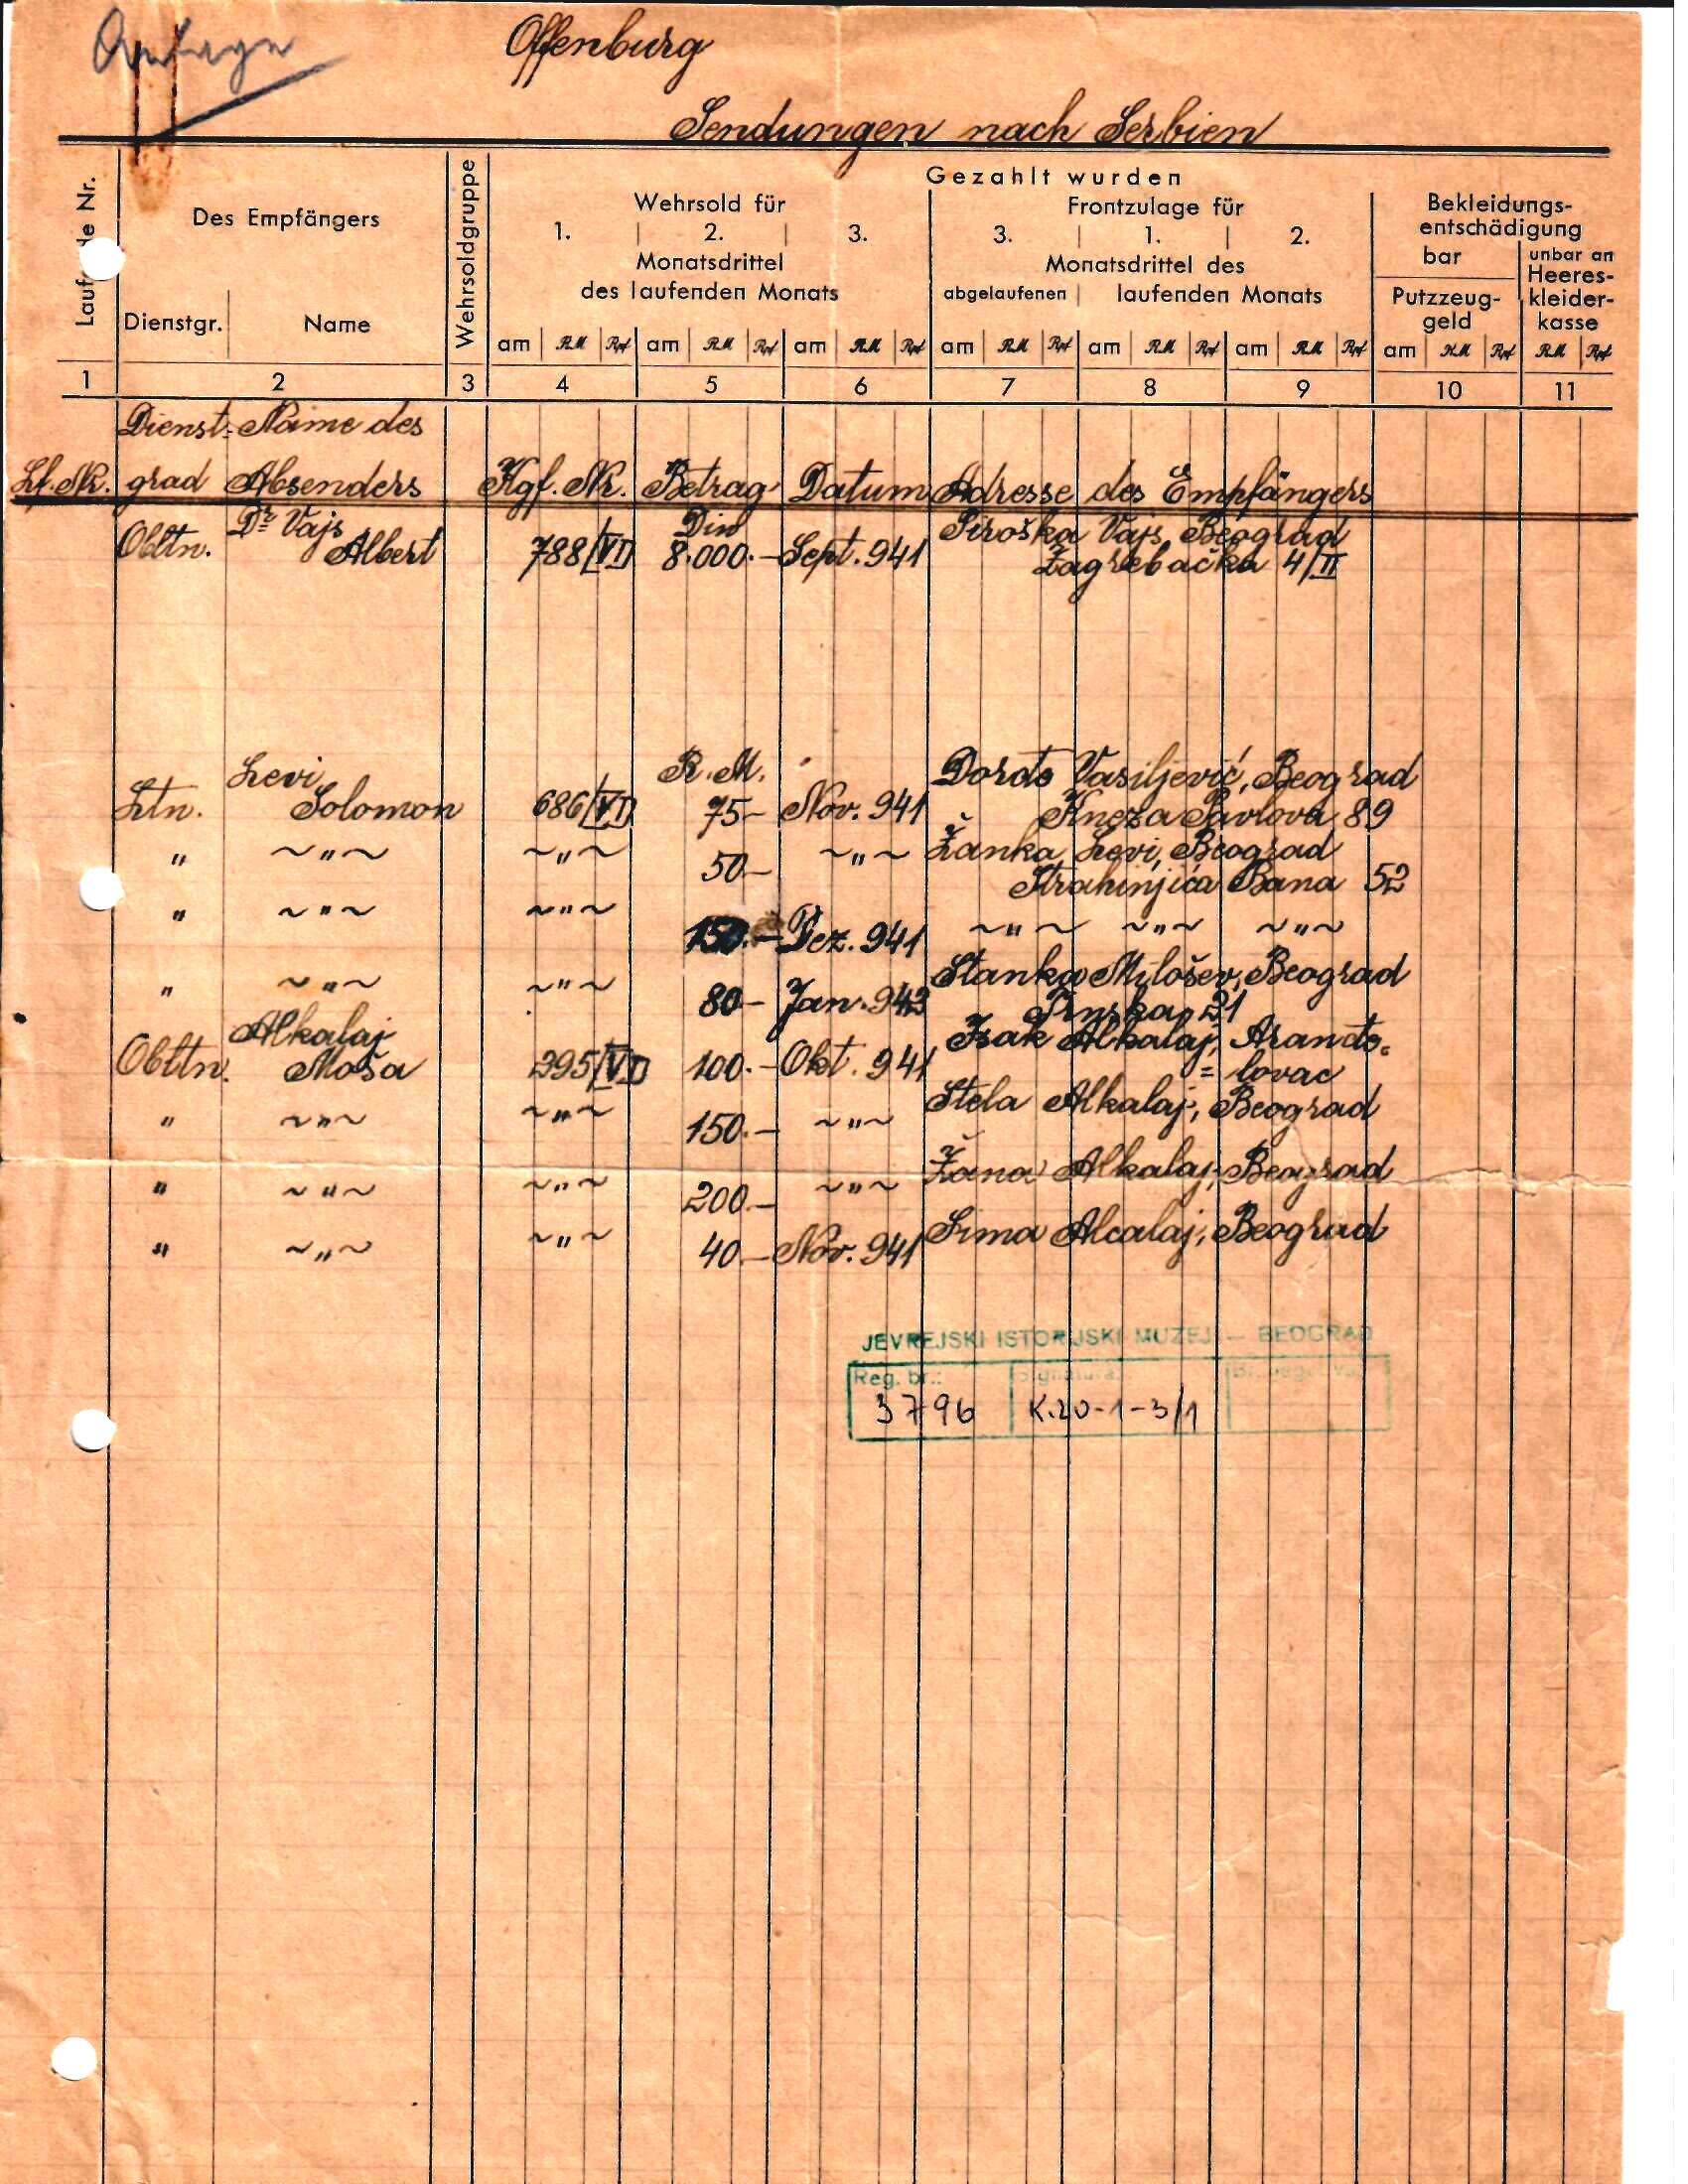 Anlage
Offenburg
Sendungen nach Serbien
Laufende Nr.
Des Empfängers
Dienstgr. Name
Wehrsoldgruppe
Gezahlt wurden
Wehrsold für
1. 2. 3.
Monatsdrittel
des laufenden Monats
Frontzulage für
3. 1. 2.
Monatsdrittel des
abgelaufenen laufenden Monats
Bekleidungs-
entschädigung
bar
Putzzeug-
geld
unbar an
Heeres-
kleider-
kasse
am RM Rpf am RM Rpf am RM Rpf am RM Rpf am RM Rpf am RM Rpf am RM Rpf RM Rpf
1 2 3 4 5 6 7 8 9 10 11
Dienst= Name des
Lf. Nr. grad Absenders Kgf. Nr. Betrag Datum Adresse des Empfängers
Dr Vajs Din Piroška Vajs, Beograd
Obltn. Albert 788/VI D 8.000.- Sept. 941 Zagrebačka 4/II
Levi R.M. Vasiljević, Beograd
Ltn. Solomon 686/VI D 75- Nov. 941 Kneza Pavlova 89
" ~"~ ~"~ 50- ~"~ Žanka Levi, Beograd
Strahinjića Bana 52
" ~"~ ~"~ 150.- Dez. 941 ~"~ ~"~ ~"~
" ~"~ ~"~ 80- Jan. 942 Stanka Milošev, Beograd
21
Alkalaj Isak Alkalaj, Aranđo=
Obltn. Moša 395/VI D 100.- Okt. 941 = lovac
" ~"~ ~"~ 150.- ~"~ Stela Alkalaj, Beograd
" ~"~ ~"~ 200.- ~"~ Žana Alkalaj, Beograd
" ~"~ ~"~ 40.- Nov. 941 Sima Alcalaj, Beograd
JEVREJSKI ISTORIJSKI MUZEJ — BEOGRAD
Reg. br.: Signatura:
3796 K.20-1-3/1